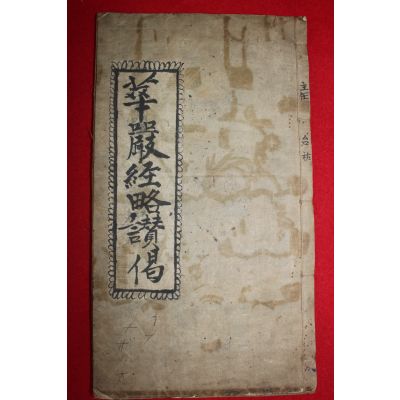 華嚴經略讚偈